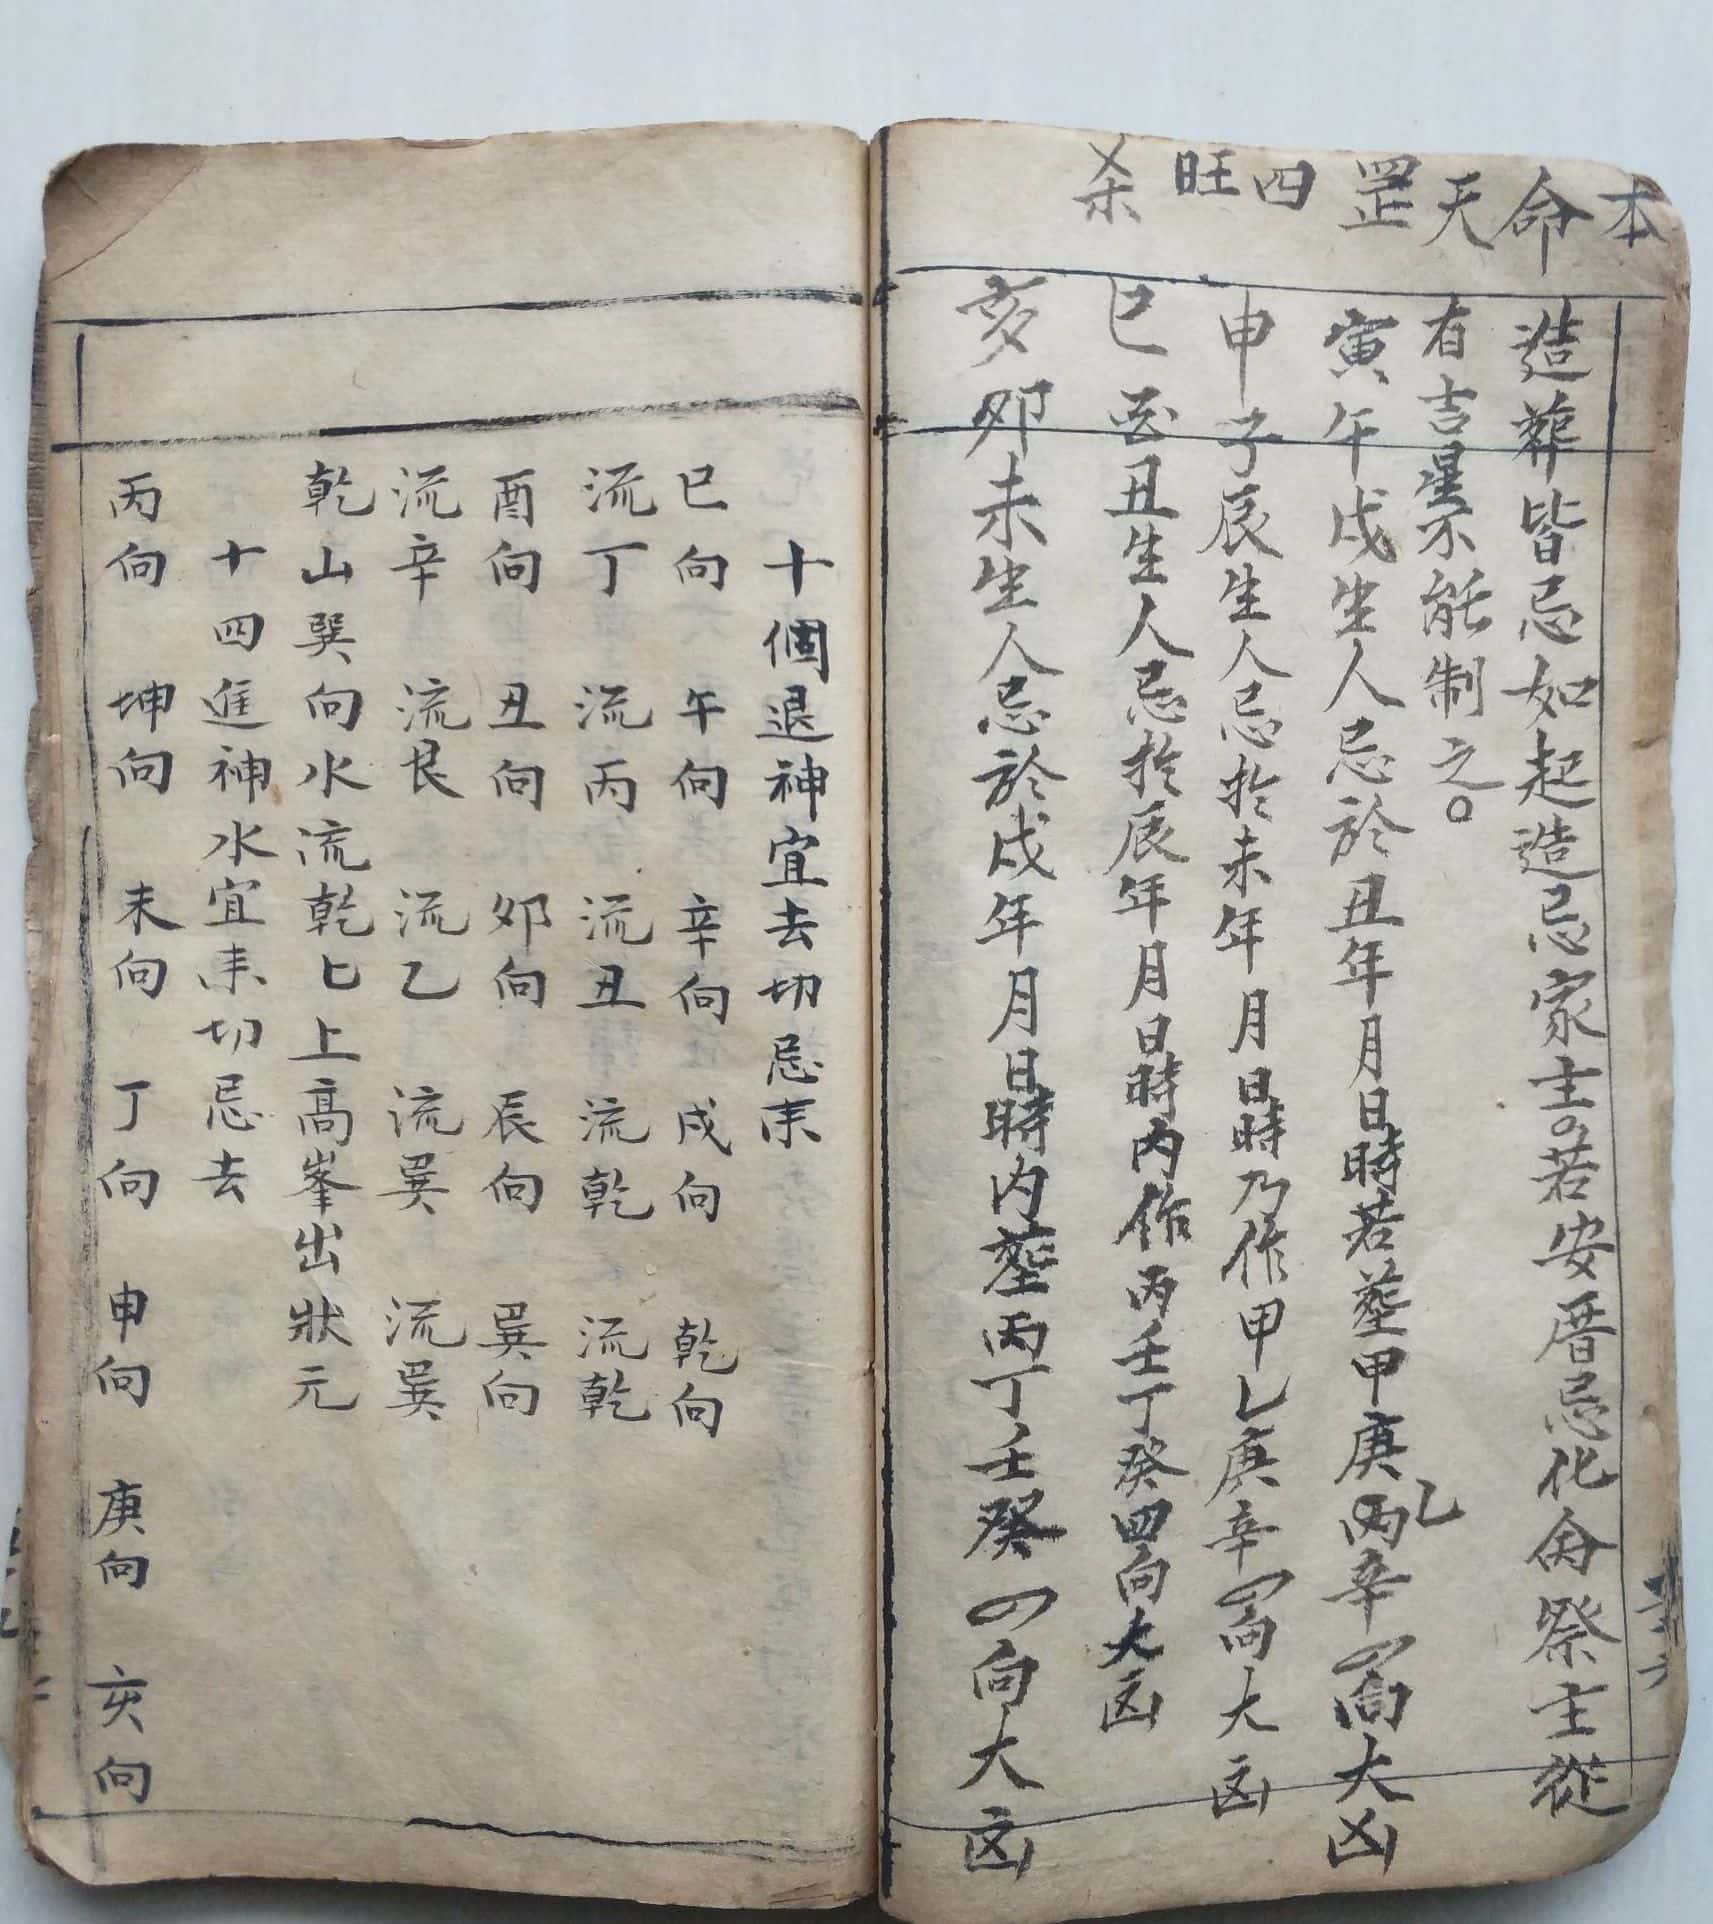 本命天罡四旺杀
造葬皆忌如起造忌家主。若安厝忌化命祭主從
有吉星不能制之。
寅午戌生人忌於丑年月日時若塟甲庚乙丙辛四向大凶
申子辰生人忌於未年月日時乃作甲乙庚辛四向大凶
巳酉丑生人忌於辰年月日時內作丙壬丁癸四向大凶
亥卯未生人忌於戌年月日時內塟丙丁壬癸四向大凶
十個退神宜去切忌来
巳向 午向 辛向 戌向 乾向
流丁 流丙 流丑 流乾 流乾
酉向 丑向 卯向 辰向 巽向
流辛 流艮 流乙 流巽 流巽
乾山巽向水流乾匕上高峯出狀元
十四進神水宜来切忌去
丙向 坤向 未向 丁向 申向 庚向 亥向